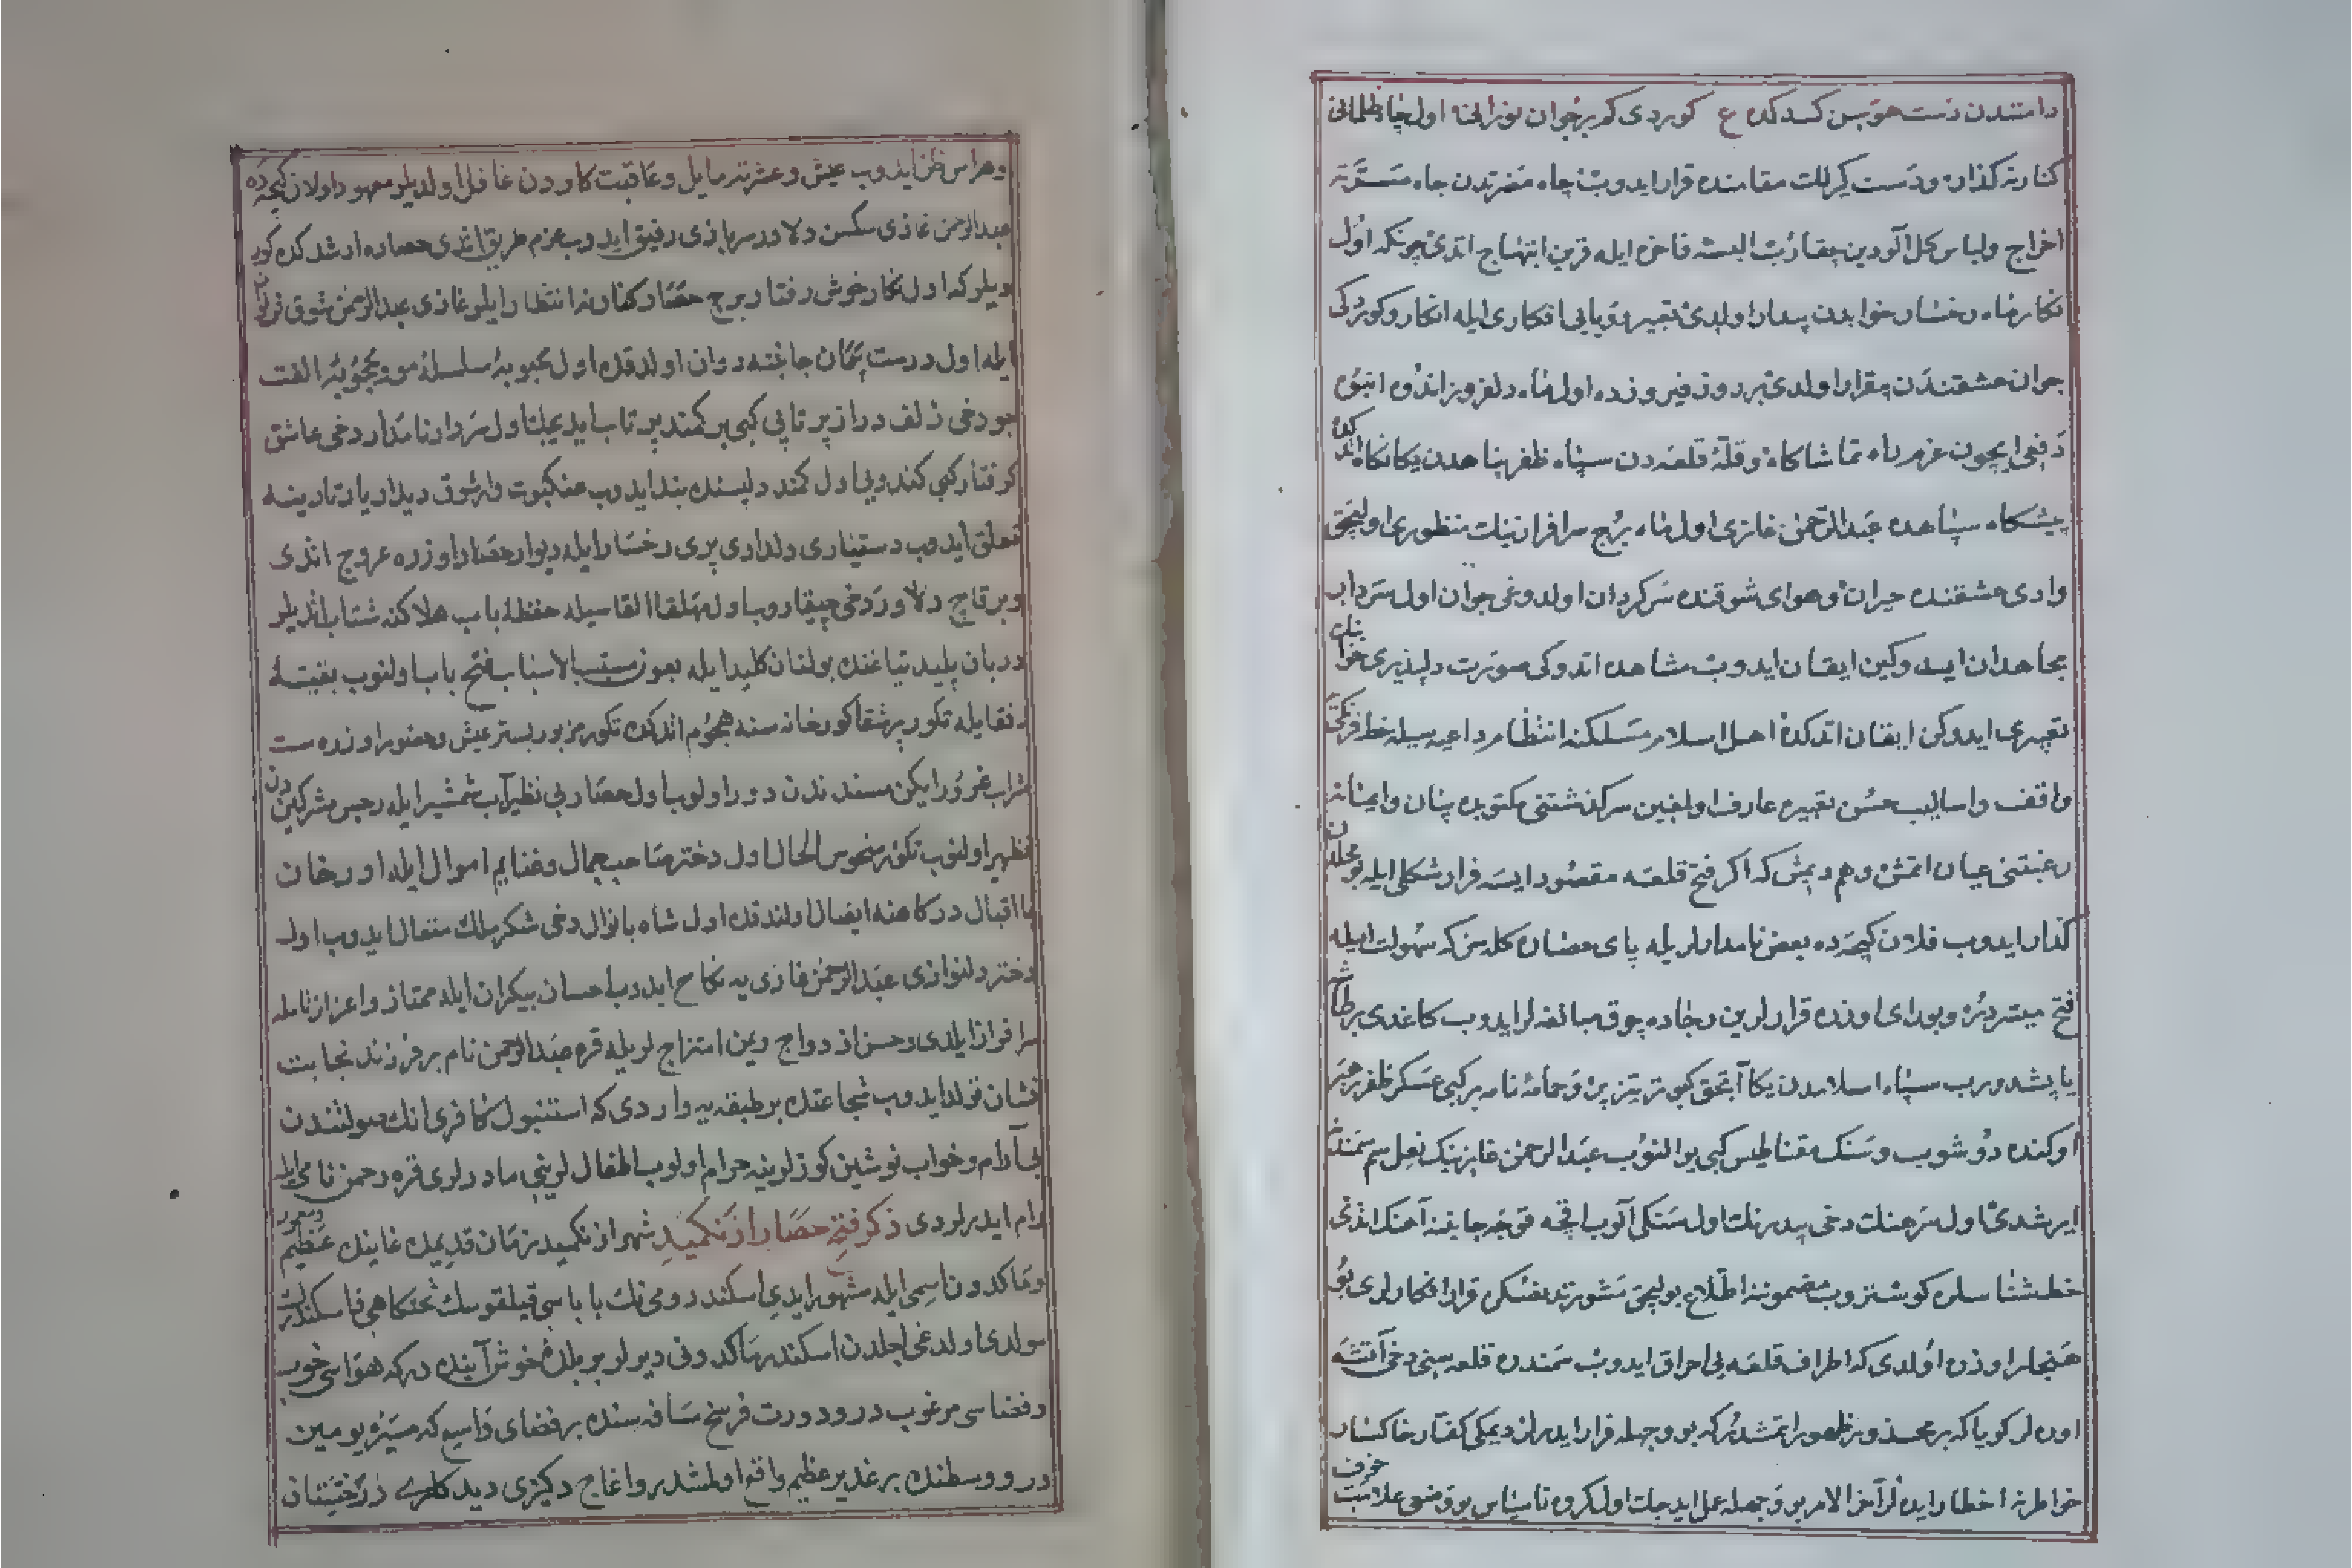 دامتندن دست هوسن کسدکده ع کوردی کم بر جوان نورانی اول چاه ظلمانی
کنارینه کذار و دست کیرلک مقامنده قرار ایدوب چاه مضرتدن جاه مسرته
اخراج ولباس کل آلودین چقاروب البسه فاخره ایله قرین ابتهاج اتدی چونکه اول
نکار ماه رخسار خوابدن بیدار اولدی تعبیر رؤیایی افکاری ایله انکار و کوزی
جوان عشقندن بیقرار اولدی بر روز فیروزده اول ماه دلفروز اندوه انبوه
دفعی ایچون عزم راه تماشاکاه و قلهٔ قلعه دن سپاه ظفرپناهدن یکا نکاه اتدکده
پیشکاه سپاهده عبدالرحمن غازی اول ماه برج سرافرازینک منظوری اولیجق
وادی عشقنده حیران و هوای شوقنده سرکردان اولدوغی جوان اول سرداب
مجاهدان ایدوکین ایقان ایدوب مشاهده اتدوکی صورت دلپذیری خوابنک
تعبیری ایدوکن ایقان اتدکده اهل اسلام مسلکنه انتظام داعیه سیله خط
واقف و اسالیب حسن تعبیره عارف اولغین سرکذشتنی مکتوبده بیان و ایمانه
رغبتنی عیان اتمش و هم دیمش که اکر فتح قلعه مقصود ایسه فرار شکلی ایله بو محلدن
کذار ایدوب فلان کیجه ده بعض نامدارلر یله پای حصاره کله سن که سهولت ایله
فتح میسر در و بو رای اوزره قرارلرین رجاده چوق مبالغه لر ایدوب کاغدی بر طاشه
یاپشدورب سپاه اسلامدن یکا آتیجق کبوتر تیزپر و حمامهٔ نامه بر کبی عسکر ظفر رهبر
اوکنده دوشوب و سنک مقناطیس کبی بوالنوب عبدالرحمن غازینک نعل سم سمندنه
ایرشدی اول سرهنک دخی بیدرنک اول سنکی آلوب اقچه قوجه جانبنه آهنک اتدی
خط شناسلره کوستروب مضمونه اطلاع بولیجق مشورتدنصکره قرار افکارلری بو
هنجار اوزره اولدی که اطراف قلعه یی احراق ایدوب سمندره قلعه سنی دخی آتشه
اوره لر کویا که بر محذور ظهور اتمشدر که بو وجهله قرار ایدرلر دیمکی کفار خاکسار
خواطرنه اخطار ایده لر آخر الامر بو وجهله عمل ایدیجک اول کروه ناسپاس بو وضعی علامت خوف
و هراس ظن ایدوب عیش و عشرته مایل و عاقبت کاردن غافل اولدیلر معهود اولان کیجه ده
عبدالرحمن غازی سکسن دلاور سربازی رفیق ایدوب عزم طریق اتدی حصاره ارشدکده کور
دیلر که اول نکار خوش رفتار برج حصار کنارنه انتظار ایلر غازی عبدالرحمن شوق فراوان
ایله اول درست پیمان جانبنه روان اولدقده اول محبوبهٔ سلسله مو و محجوبهٔ الفت
جو دخی زلف دراز پر تابی کبی بر کمند پر تاب ایدیجک اول سردار نامدار دخی عاشق
کرفتار کبی کندویی اول کمند دلپسنده بند ایدوب عنکبوت وار شوق دیدار یار تارینه
تعلق ایدوب دستیاری دلداری پری رخسار ایله دیوار حصار اوزره عروج اتدی
و بر قاچ دلاور دخی چیقاروب اول مهلقا القاسیله حفظهٔ باب هلاکنه شتاب اتدیلر
دربان پلید یتاغنده بولنان کلید ایله بعون مسبب الاسباب فتح باب اولنوب بقیه
رفقا ایله تکور پر شقا کورخانه سنه هجوم اتدکده تکور مزبور بستر عیش و حضور اوزره مست
شراب غرور ایکن مسندندن دور اولوب اول حصار بی نظیر آب شمشیر ایله رجس مشرکیندن
تطهیر اولنوب تکور منحوس الحال اول دختر صاحب جمال و غنایم اموال ایله اورخان
با اقبال درکاهنه ایصال اولندقده اول شاه بانوال دخی شکر ملک متعال ایدوب اول
دختر دلنوازی عبدالرحمن غازی یه نکاح ایدوب احسان بیکران ایله ممتاز و اعزاز تامله
سرافراز ایلدی و حسن ازدواج و یمن امتزاج لریله قره عبدالرحمن نام بر فرزند نجابت
نشان تولد ایدوب شجاعتده بر طبقه یه واردی که استنبول کافری انک صولتندن
بی آرام و خواب نوشین کوزلرینه حرام اولوب اطفال لرینی مادرلری قره رحمن نامی ایله
رام ایدرلردی ذکر فتح حصار ازنکمید شهر ازنکمید زمان قدیمدن غاینک عظیم و معمور
و ماکدون اسمی ایله مشهور ایدی اسکندر رومی نک باباسی فیلقوسک تختکاهی فاسکندرک
مولدی اولدغی اجلدن اسکندر ماکدونی دیرلر بر بلدهٔ خوش آینده در که هواسی خوب
و فضاسی مرغوب در و دورت فرسخ مسافه سنده بر فضای واسع که مسیر یومین
در و وسطنده بر غدیر عظیم واقع اولمشدر و اغاج دکزی دیدکلری درختستان